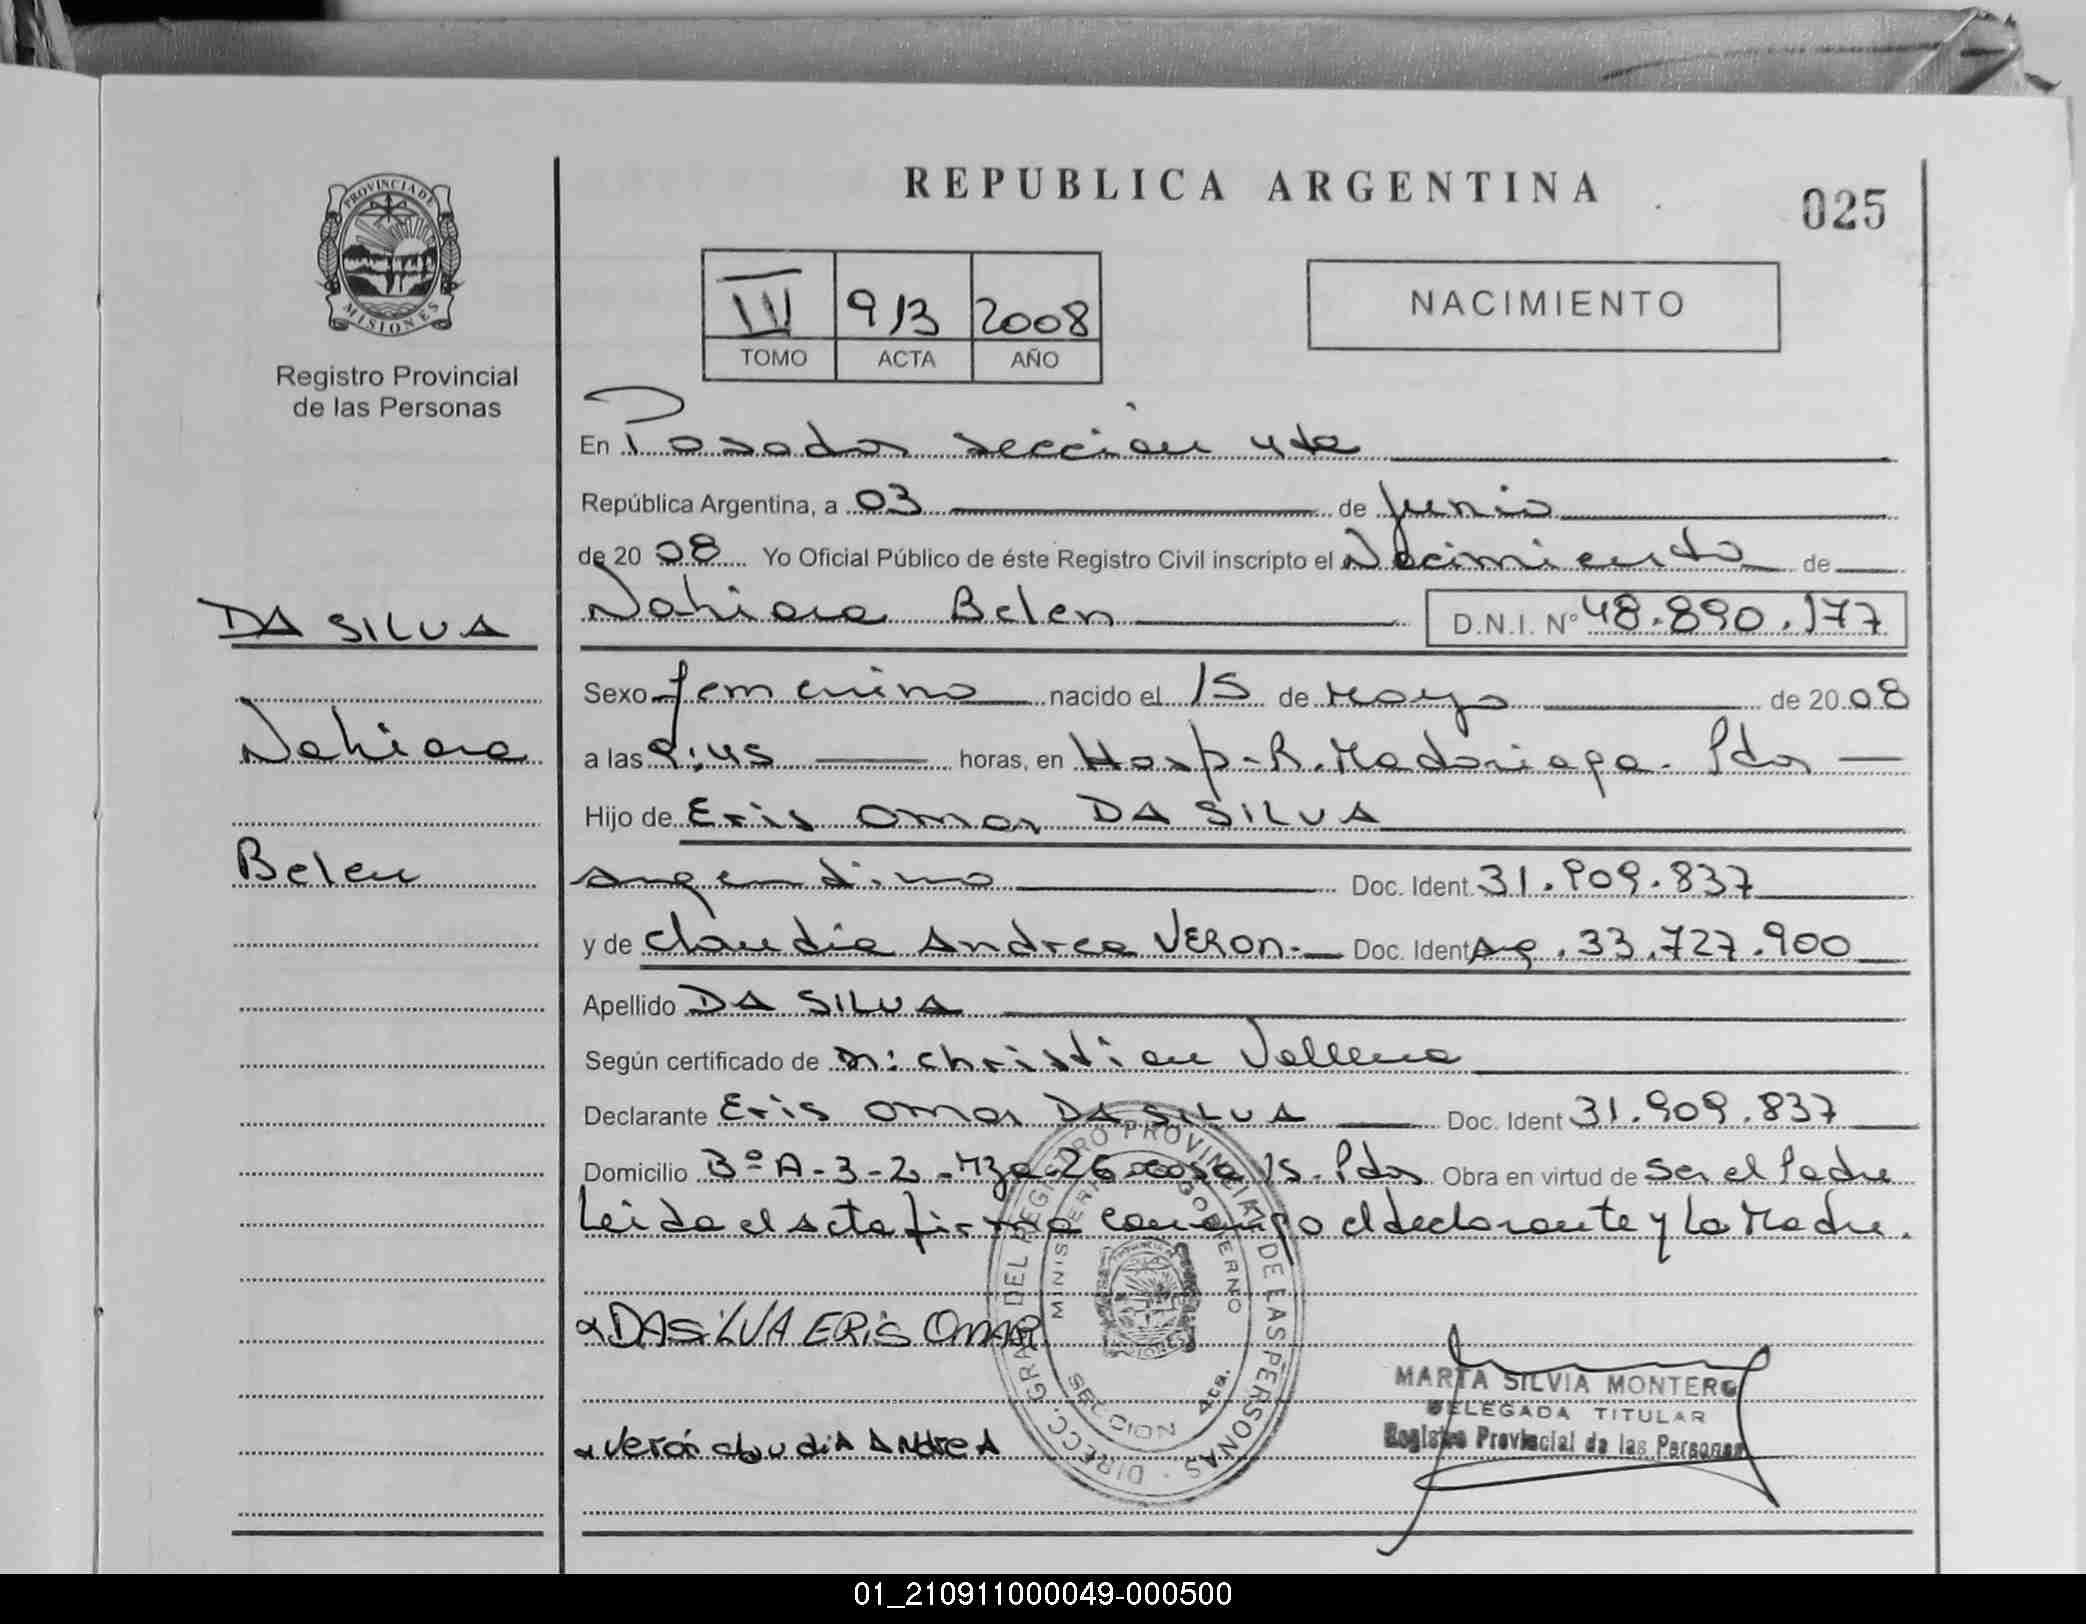 REPUBLICA ARGENTINA
025
PROVINCIA DE
MISIONES
Registro Provincial
de las Personas
III 913 2008
TOMO ACTA AÑO
NACIMIENTO
En Posadas sección 4ta
República Argentina, a 03 de Junio
de 20 08 Yo Oficial Público de éste Registro Civil inscripto el Nacimiento de
Nahiara Belen D.N.I. Nº 48.890.177
DA SILVA
Nahiara
Belen
Sexo femenino nacido el 15 de Mayo de 20 08
a las 9:45 horas, en Hosp. R. Madariaga. Pdas
Hijo de Eris Omar DA SILVA
argentino Doc. Ident. 31.909.837
y de Claudia Andrea VERON.- Doc. Ident Ag. 33.727.900
Apellido DA SILVA
Según certificado de Christian Vallena
Declarante Eris Omar DA SILVA Doc. Ident 31.909.837
Domicilio Bº A-3-2-Mza-26 casa 15. Pdas Obra en virtud de ser el Padre
Leida el acta firma conmigo el declarante y la Madre.
DASiLVA ERiS OMAR
Verón claudiA ANdreA
DIRECC. GRAL. DEL REGISTRO PROVINCIAL DE LAS PERSONAS
MINISTERIO GOBIERNO
SECCION 4ta.
MARTA SILVIA MONTERO
DELEGADA TITULAR
Registro Provincial de las Personas
01_210911000049-000500